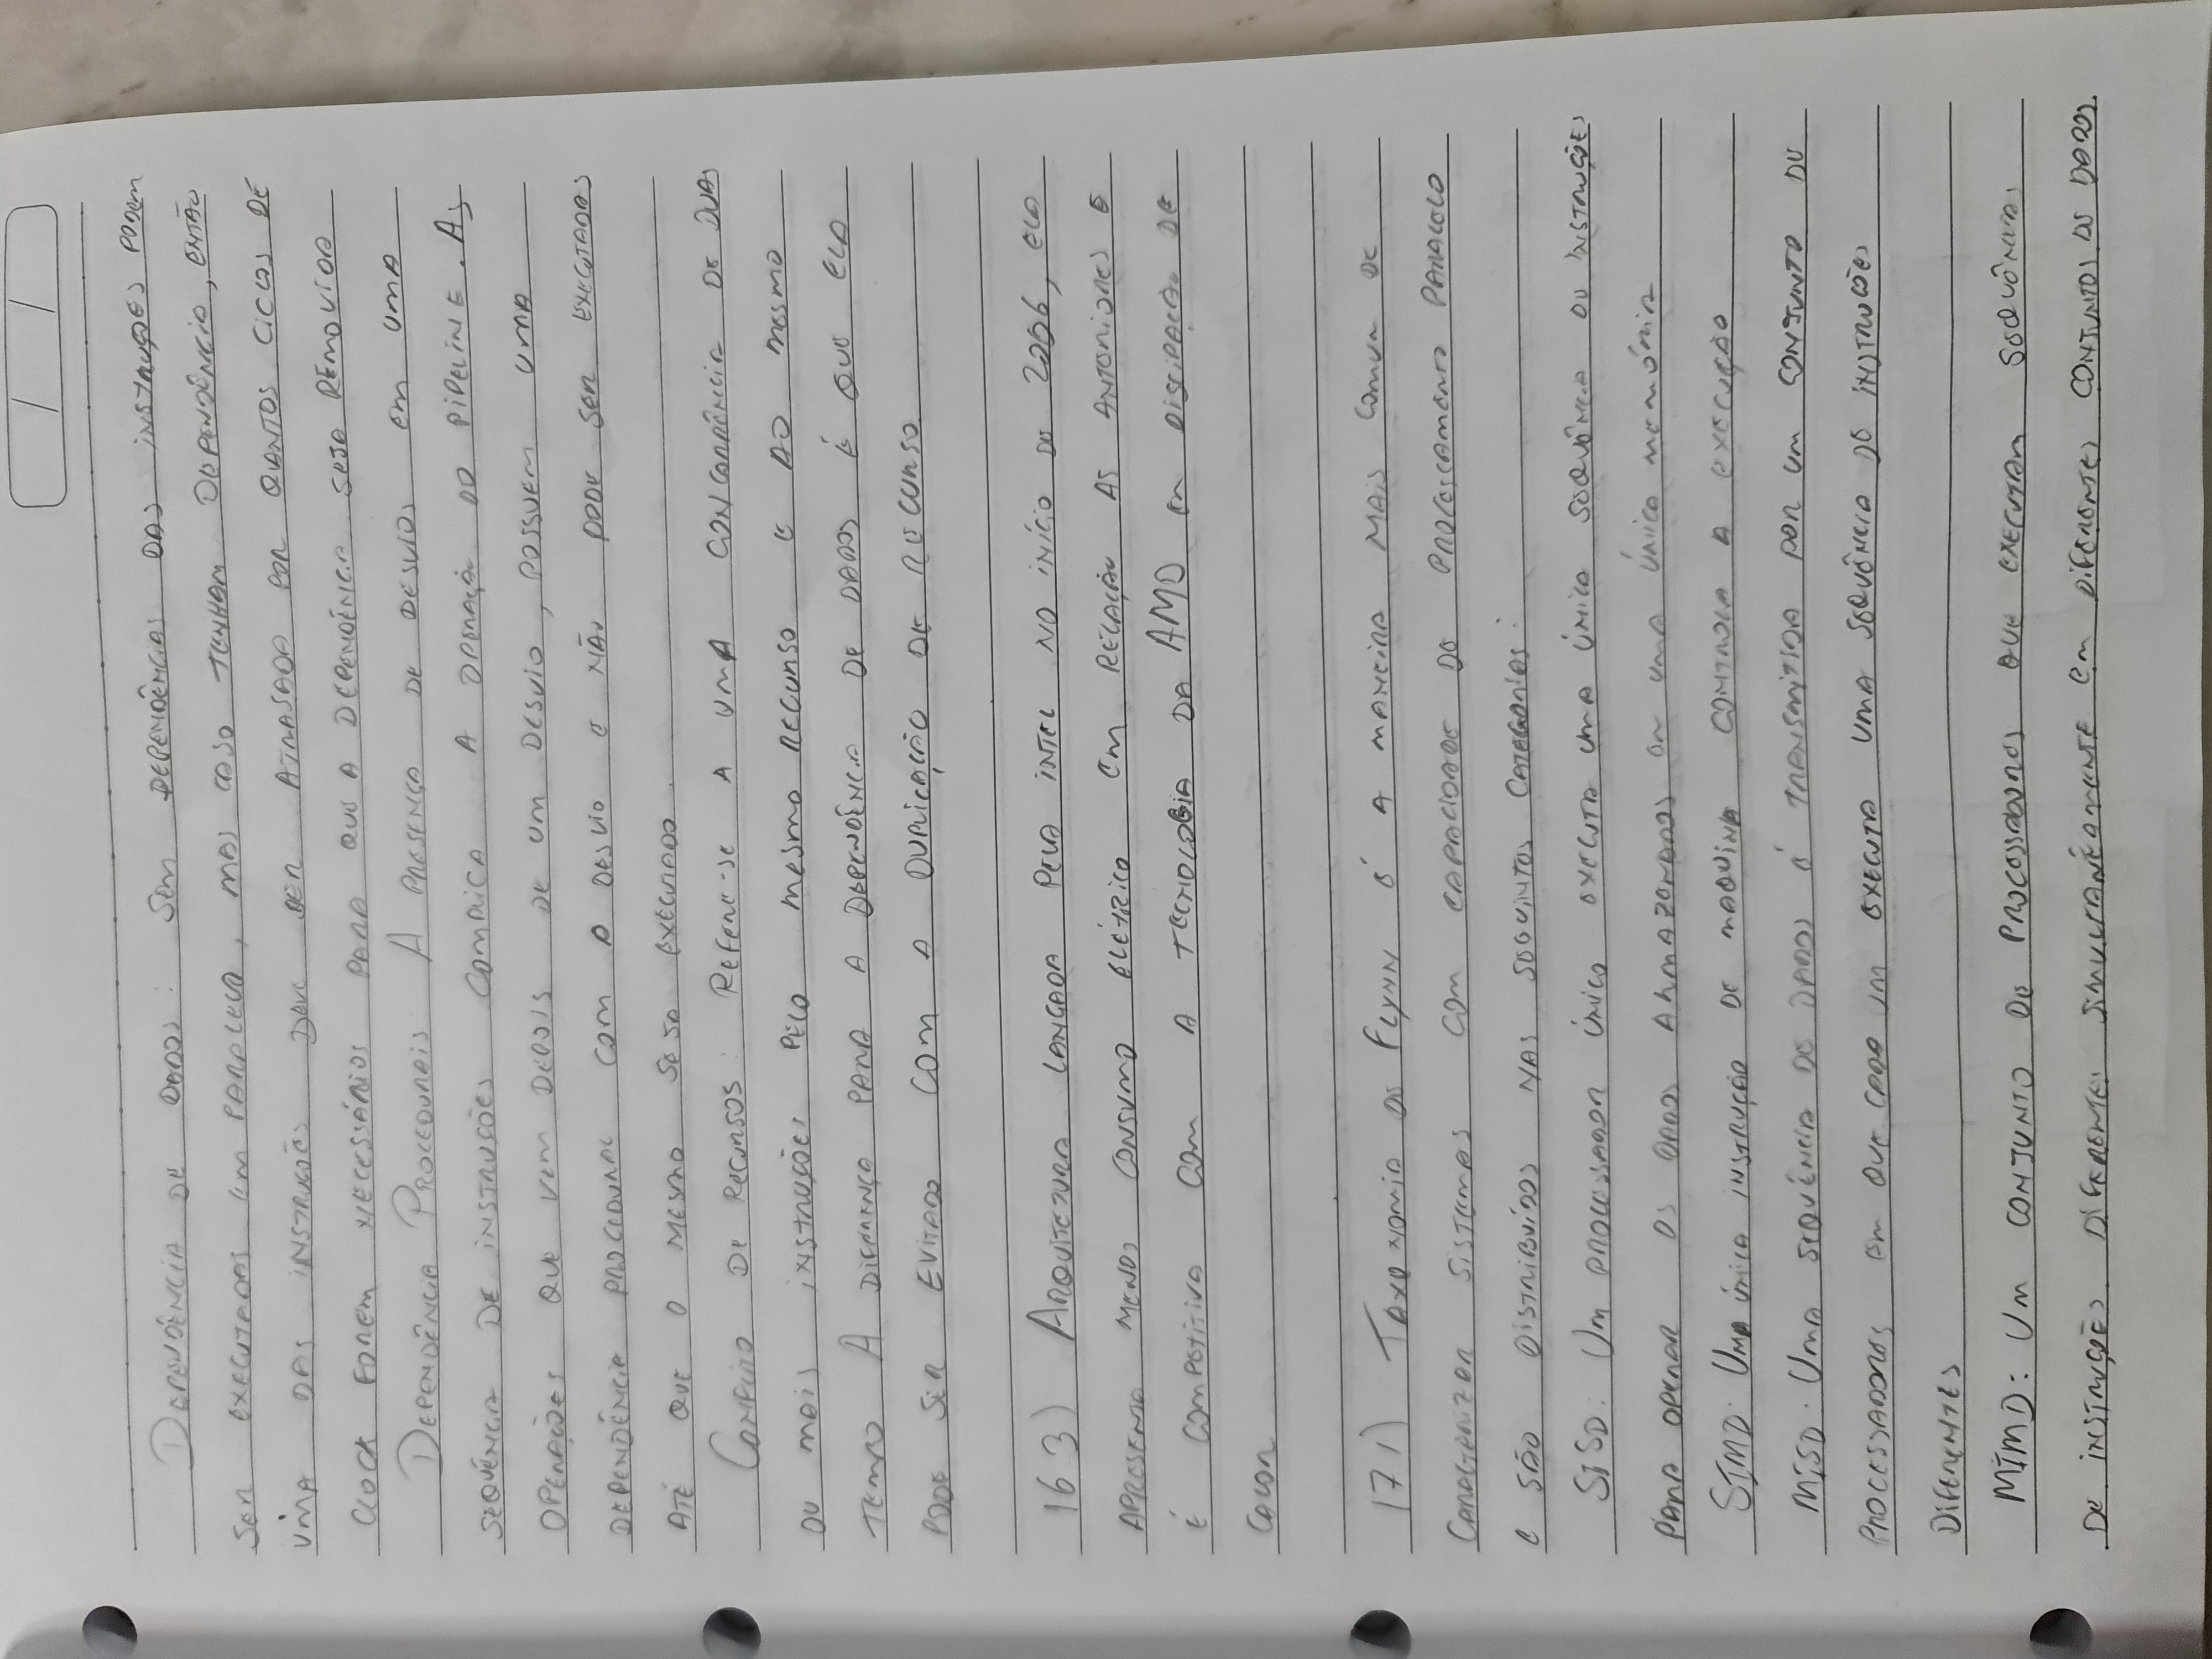 DEPENDÊNCIA DE DADOS: SEM DEPENDÊNCIAS DAS INSTRUÇÕES PODEM
SER EXECUTADAS EM PARALELO, MAS CASO TENHAM DEPENDÊNCIA, ENTÃO
UMA DAS INSTRUÇÕES DEVE SER ATRASADA POR QUANTOS CICLOS DE
CLOCK FOREM NECESSÁRIOS PARA QUE A DEPENDÊNCIA SEJA REMOVIDA
DEPENDÊNCIA PROCEDURAIS: A PRESENÇA DE DESVIOS EM UMA
SEQUÊNCIA DE INSTRUÇÕES COMPLICA A OPERAÇÃO DO PIPELINE. AS
OPERAÇÕES QUE VEM DEPOIS DE UM DESVIO, POSSUEM UMA
DEPENDÊNCIA PROCEDURAL COM O DESVIO E NÃO PODE SER EXECUTADAS
ATÉ QUE O MESMO SEJA EXECUTADO.
CONFLITO DE RECURSOS: REFERE-SE A UMA CONCORRÊNCIA DE DUAS
OU MAIS INSTRUÇÕES PELO MESMO RECURSO E AO MESMO
TEMPO A DIFERENÇA PARA A DEPENDÊNCIA DE DADOS É QUE ELA
PODE SER EVITADO COM A DUPLICAÇÃO DE RECURSO
16 3) ARQUITETURA LANÇADA PELA INTEL NO INÍCIO DE 2006, ELA
APRESENTA MENOS CONSUMO ELÉTRICO EM RELAÇÃO AS ANTERIORES E
É COMPETITIVA COM A TECNOLOGIA DA AMD EM DISCIPAÇÃO DE
CALOR
17 1) TAXONOMIA DE FLYNN É A MANEIRA MAIS COMUM DE
CARACTERIZAR SISTEMAS COM CAPACIDADE DE PROCESSAMENTO PARALELO
E SÃO DISTRIBUÍDOS NAS SEGUINTES CATEGORIAS:
SISD: UM PROCESSADOR ÚNICO EXECUTA UMA ÚNICA SEQUÊNCIA DE INSTRUÇÕES
PARA OPERAR OS DADOS ARMAZENADOS EM UMA ÚNICA MEMÓRIA
SIMD: UMA ÚNICA INSTRUÇÃO DE MAQUINA CONTROLA A EXECUÇÃO
MISD: UMA SEQUÊNCIA DE DADOS É TRANSMITIDA POR UM CONJUNTO DE
PROCESSADORES EM QUE CADA UM EXECUTA UMA SEQUÊNCIA DE INSTRUÇÕES
DIFERENTES
MIMD: UM CONJUNTO DE PROCESSADORES QUE EXECUTAM SEQUÊNCIAS
DE INSTRUÇÕES DIFERENTES SIMULTANÉAMENTE EM DIFERENTES CONJUNTOS DE DADOS.